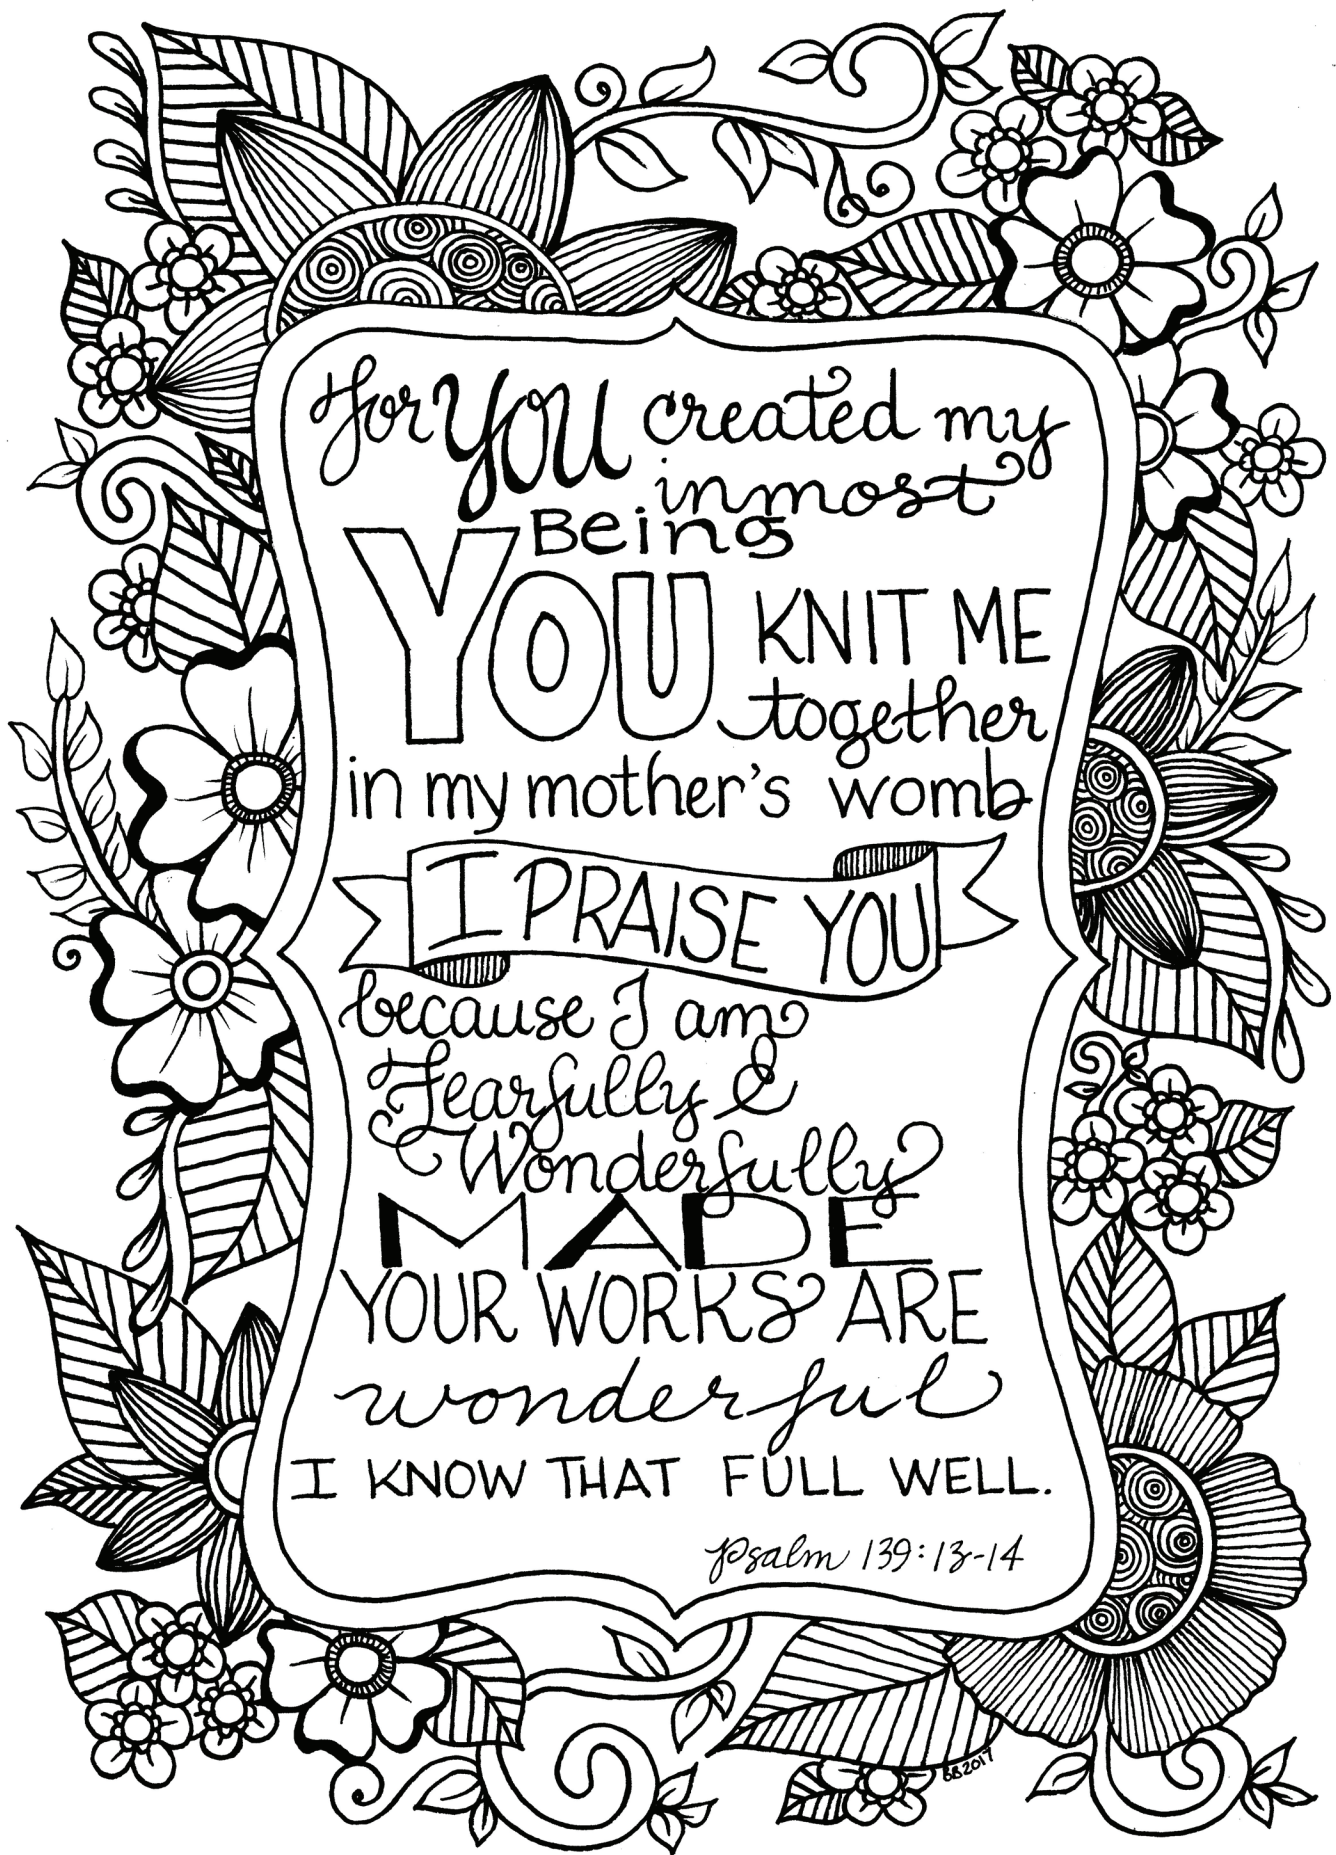 For YOU created my
inmost
Being
YOU KNIT ME
together
in my mother's womb
I PRAISE YOU
because I am
Fearfully &
Wonderfully
MADE
YOUR WORKS ARE
wonderful
I KNOW THAT FULL WELL.
Psalm 139:13-14
BB2017